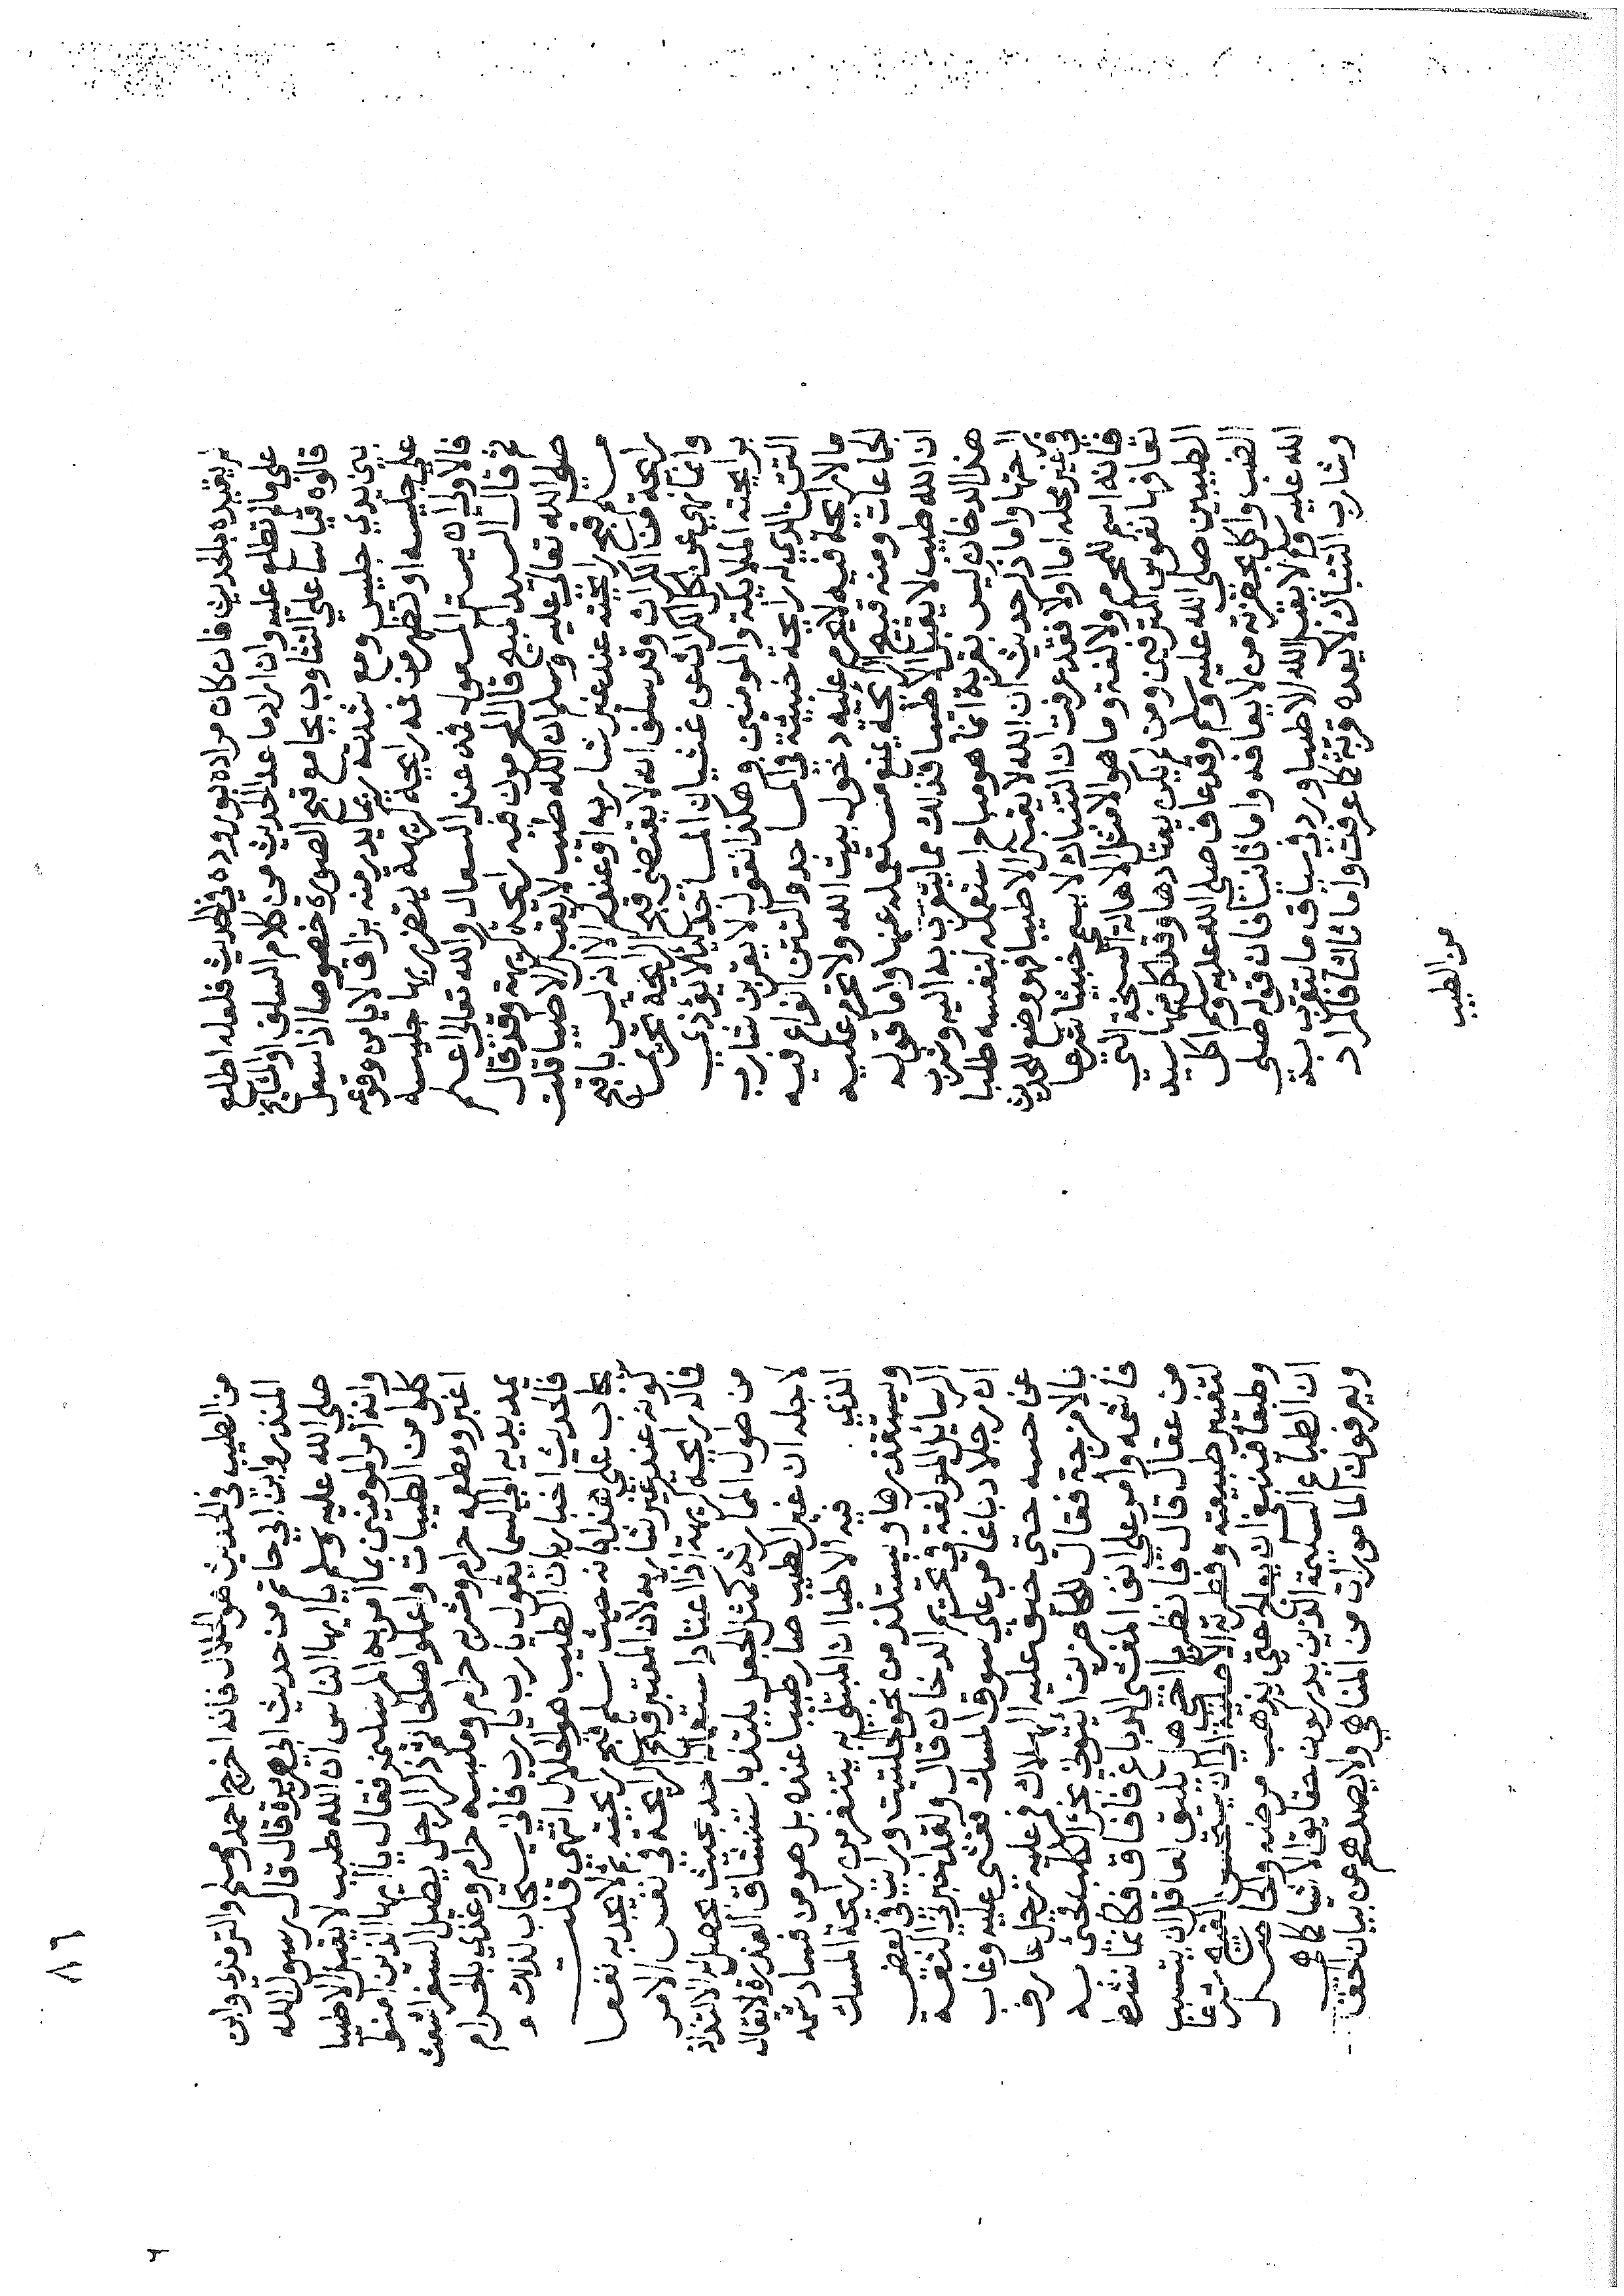 لم يقيده بالحديث فان كان مراده بوروده في الحديث فلعله اطلع
علي مالم نطلع عليه وان اراد ما عدا الحديث من كلام السلف او المشايخ
قالوه قياسا علي التثاوب بجامع قبح الصورة خصوصا اذا سعل
بين يدي جليس ومع شدته ربما يبدر منه بزاق لا يامن وقوعه
علي جليسه او تظهر من فمه رايحة كريهة يتضرر بها جليسه
فالاولي ان يستر المسعول فمه عند السعال والله تعالي اعلم
ثم قال السيد امبيح قال المحرمون فيه رايحة كريهة وقد قال
صلي الله تعالي عليه وسلم ان الله طيب لا يقبل الا طيبا قلت
مسلم قبح رايحته عند غير شاربه او عند الا انه ليس باقبح
رايحة من الكراث وقد سلف انه لا يقتضي قبح الريحة تحريما
وانما نهي عن اكل الكراث عن غشيان المساجد ليلا يؤذي
برايحته الملايكة والمومنين وهكذا نقول لا يقربن شارب
التتن الذي له رايحة خبيثة في المساجد والتتن انواع فيه
مالا رايحة فيه لا يحرم عليه دخول بيت الله ولا يحرم عليه
الجماعات ومنه قبيح الرايحة يمنع مستعمله عنها واما قوله
ان الله طيب لا يقبل الا طيبا فذلك مما يتقرب به اليه وشرب
هذا الدخان ليس بقربة انما هو مباح استعمله لنفسه طلبا
لراحتها واما ذكر حديث ان الله لا يقبل الا طيبا فهو وضع الحديث
في غير محله اما اولا فقد عرفت ان التنباك لا يسمي خبيثا شرعا
فانه اسم للمحرم ولا لغة وما هو الا مثل الاهالة السنخة التي
تعافها نفوس المترفين ومن لم يكن يعتادها وقد اكل منها سيد
الطيبين صلي الله عليه وسلم وقد عاف صلي الله عليه وسلم اكل
الضب واكل بحضرته من لا يعافه واما ثانيا فان قوله صلي
الله عليه وسلم لا يقبل الله الا طيبا ورد في سياق ما يتقرب به
وشارب التنباك لا يعده قربة كما عرفت واما ثالثا فالمراد
من الطيب
٨٦
من الطيب في الحديث هو الحلال فانه اخرج احمد ومسلم والترمذي وابن
المنذر وابن ابي حاتم من حديث ابي هريرة قال قال رسول الله
صلي الله عليه وسلم يا ايها الناس ان الله طيب لا يقبل الا طيبا
وانه امر المومنين بما امر به المرسلين فقال يا ايها الذين امنوا
كلوا من الطيبات واعملوا صالحا ثم ذكر الرجل يطيل السفر اشعث
اغبر ومطعمه حرام ومشربه حرام وملبسه حرام وغذي بالحرام
يمد يديه الي السما يقول يا رب يا رب فاني يستجاب لذلك و
فالحديث اخبار بان الطيب هو الحلال انتهي قلت
يجاب علي هذا بانه حيث سلم قبح رايحته لا يجديه نفعا
كونه عند غير شاربه لان المعتبر قبح الرايحة في نفس الامر
فاله رايحة كريهة اذا اعتاد استعماله احد بحيث يحصل له الالتذاذ
من طول الممارسة كمثل الجعل يلتذ باستنشاق العذرة لا يقال
لاجله ان غير الطيب صار طيبا عنده بل هو من فساد شمه
الذي فيه الاطبا ان المبتلي به يتنفر من رايحة المسك
ويستقذرها ويستلذ من نحو الحلتيت ورايت في بعض
الرسايل المولفة في تحريم الدخان قال ولقد اخبرني الثقة
ان رجلا دباغا مر علي سوق المسك فغشي عليه وغاب
عن حسه حتي خيف عليه الهلاك فمر عليه رجل عارف
بالامزجة فقال للحاضرين ايتوني بخرأ الكلب فجئ به
فاشمه وامر علي انف المغشي الدباغ فافاق فكانما نشط
من عقال قال فانظر يا اخي هل يليق لعاقل ان يتسبب
لتغيير طبيعته وفطرته الاصلية الي ان يستحسن القبيح شرعا
وطبعا فينبغي ان يعالج حتي يذهب مرضه والحاصل
ان الطباع السليمة الذين يدركون حقايق الاشيا كما هي
ويعرفون المامورات من المناهي ولا يصدهم عن بيان الحق